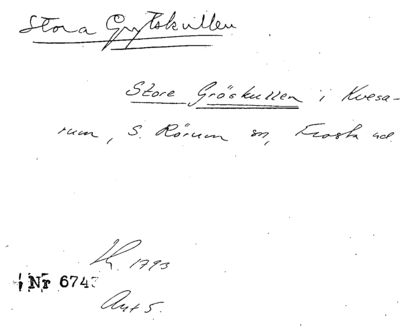 Stora Grytskullen
Store Gröskullen i Kvesa-
rum, S. Rörum sn, Frosta hd
1793
Nr 6743
Ant 5.